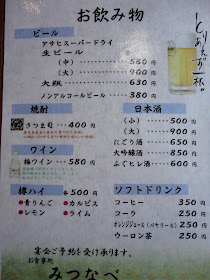 お飲み物
とりあえず一杯。
ビール
アサヒスーパードライ
生ビール
(中) 580円
(大) 900円
大瓶 630円
ノンアルコールビール 380円
焼酎
さつま司 400円
ワイン
梅ワイン 580円
樽ハイ 各500円
●青りんご ●カルピス
●レモン ●ライム
日本酒
(小) 500円
(大) 900円
にごり酒 650円
大吟醸酒 850円
ふぐヒレ酒 600円
ソフトドリンク
コーヒー 350円
コーラ 250円
オレンジジュース(バヤリース) 250円
ウーロン茶 250円
宴会ご予約を受け承ります。
お食事処
みつなべ